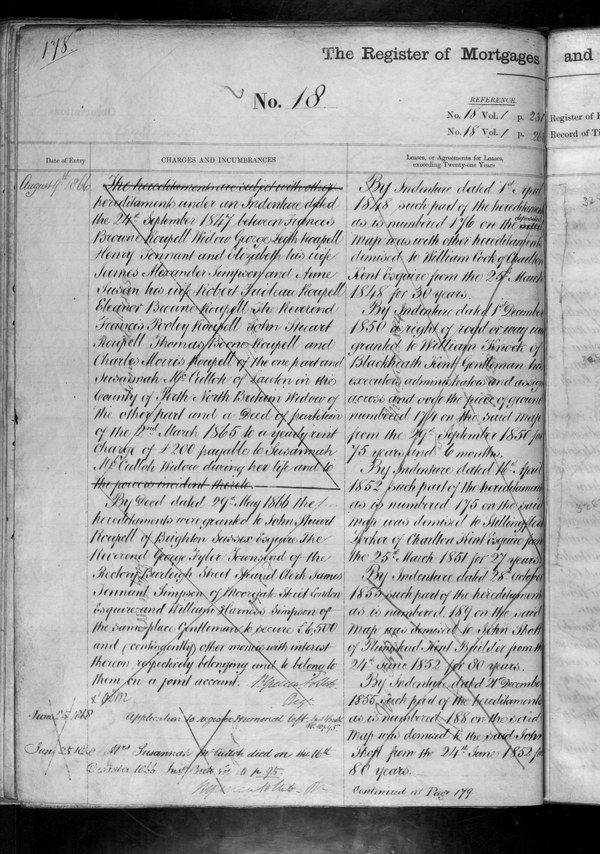 178
The Register of Mortgages
and
No. 18
REFERENCE
No. 18 Vol. 1 p.
No. 18 Vol. 1 p.
Register of
Record of
Date of Entry
CHARGES AND INCUMBRANCES
Leases, or Agreements for Leases,
exceeding Twenty-one Years
August 9th 1866
The hereditaments are subject with other
hereditaments under an Indenture dated
the 24th September 1847 between Frances
Browne Roupell Widow George Roupell
Henry Tennant and Elizabeth his wife
James Alexander Simpson and Anne
Susan his wife Robert Roupell
Eleanor Browne Roupell The Reverend
Francis Pooley Roupell John Stuart
Roupell Thomas Boone Roupell and
Charles Morris Roupell of the one part and
Susannah McCulloh of Lawton in the
County of Perth North Britain Widow of
the other part and a Deed of partition
of the 2nd March 1865 to a yearly rent
charge of £200 payable to Susannah
McCulloh Widow during her life and to
the powers incident thereto
By Deed dated 29th May 1866 the
hereditaments were granted to John Stuart
Roupell of Brighton Sussex Esquire The
Reverend George Fyler Townsend of the
Rectory Burleigh Street Strand Clerk James
Tennant Simpson of Moorgate Street London
Esquire and William Harness Simpson of
the same place Gentleman to secure £6,500
and (contingently) other monies with interest
thereon respectively belonging and to belong to
them on a joint account.
June 25 1868
Application to register Memorial left
June 25 1868
Mrs Susannah McCulloh died on the 16th
October 1866
By Indenture dated 1st April
1848 such part of the hereditaments
as is numbered 176 on the
map was with other hereditaments
demised to William Cook of Charlton
Kent Esquire from the 25th March
1848 for 30 years.
By Indenture dated 1st December
1850 a right of road or way was
granted to William Knock of
Blackheath Kent Gentleman his
executors administrators and assigns
across and over the piece of ground
numbered 174 on the said map
from the 29th September 1850 for
75 years and 6 months.
By Indenture dated 16th April
1852 such part of the hereditaments
as is numbered 175 on the said
map was demised to Stillingfleet
of Charlton Kent Esquire from
the 25th March 1851 for 27 years
By Indenture dated 28th October
1853 such part of the hereditaments
as is numbered 189 on the said
map was demised to John Thott
of Plumstead Kent Builder from the
24th June 1852 for 80 years.
By Indenture dated 21st December
1855 such part of the hereditaments
as is numbered 188 on the said
map was demised to the said John
Thott from the 24th June 1852 for
80 years.
Continued at Page 179